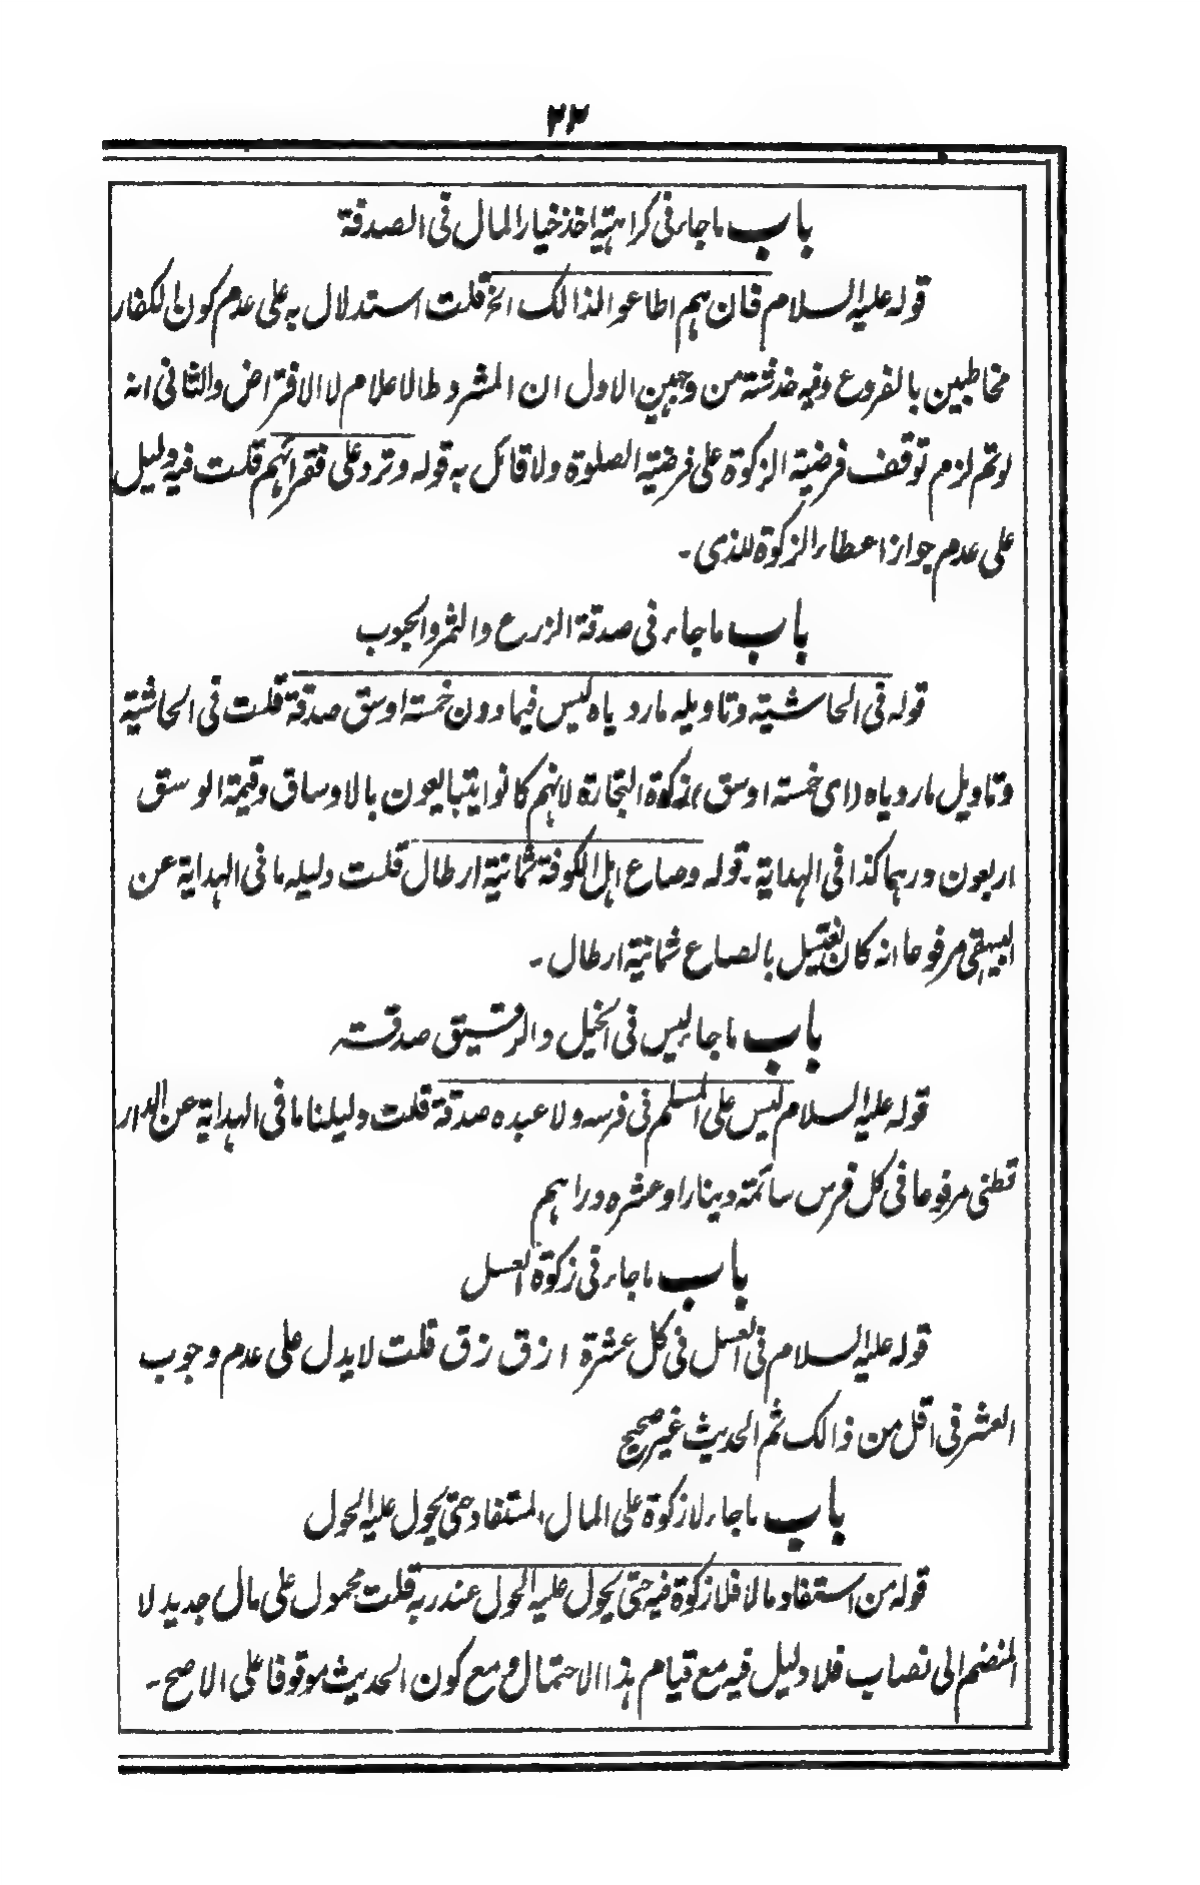 ٢٣
باب ماجاء فی کراهية اخذ خيار المال فی الصدقة
قوله عليه السلام فان هم اطاعوا لذالک الخ قلت استدلال به علی عدم کون الکفار
مخاطبين بالفروع وفيه خدشة من وجهين الاول ان المشروط الاعلام لا الافتراض والثانی انه
لو تم لزم توقف فرضية الزکوة علی فرضية الصلوة ولا قائل به قوله وترد علی فقرائهم قلت فيه دليل
علی عدم جواز اعطاء الزکوة للذمی ۔
باب ماجاء فی صدقة الزرع والثمر والحبوب
قوله فی الحاشية وتاويله ماروياه ليس فيما دون خمسة اوسق صدقة قلت فی الحاشية
وتاويل ماروياه (ای خمسة اوسق) زکوة التجارة لانهم کانوا يتبايعون بالاوساق وقيمة الوسق
اربعون درهما کذا فی الهداية ۔ قوله وصاع اهل الکوفة ثمانية ارطال قلت دليله ما فی الهداية عن
البيهقی مرفوعا انه کان يغتسل بالصاع ثمانية ارطال ۔
باب ماجاء ليس فی الخيل والرقيق صدقة
قوله عليه السلام ليس علی المسلم فی فرسه ولا عبده صدقة قلت دليلنا ما فی الهداية عن الدار
قطنی مرفوعا فی کل فرس سائمة دينار او عشره دراهم
باب ماجاء فی زکوة العسل
قوله عليه السلام فی العسل فی کل عشرة ازق زق قلت لا يدل علی عدم وجوب
العشر فی اقل من ذالک ثم الحديث غير صحيح
باب ماجاء لا زکوة علی المال المستفاد حتی يحول عليه الحول
قوله من استفاد مالا فلا زکوة فيه حتی يحول عليه الحول عند ربه قلت محمول علی مال جديد لا
المنضم الی نصاب فلا دليل فيه مع قيام هذا الاحتمال ومع کون الحديث موقوفا علی الاصح ۔